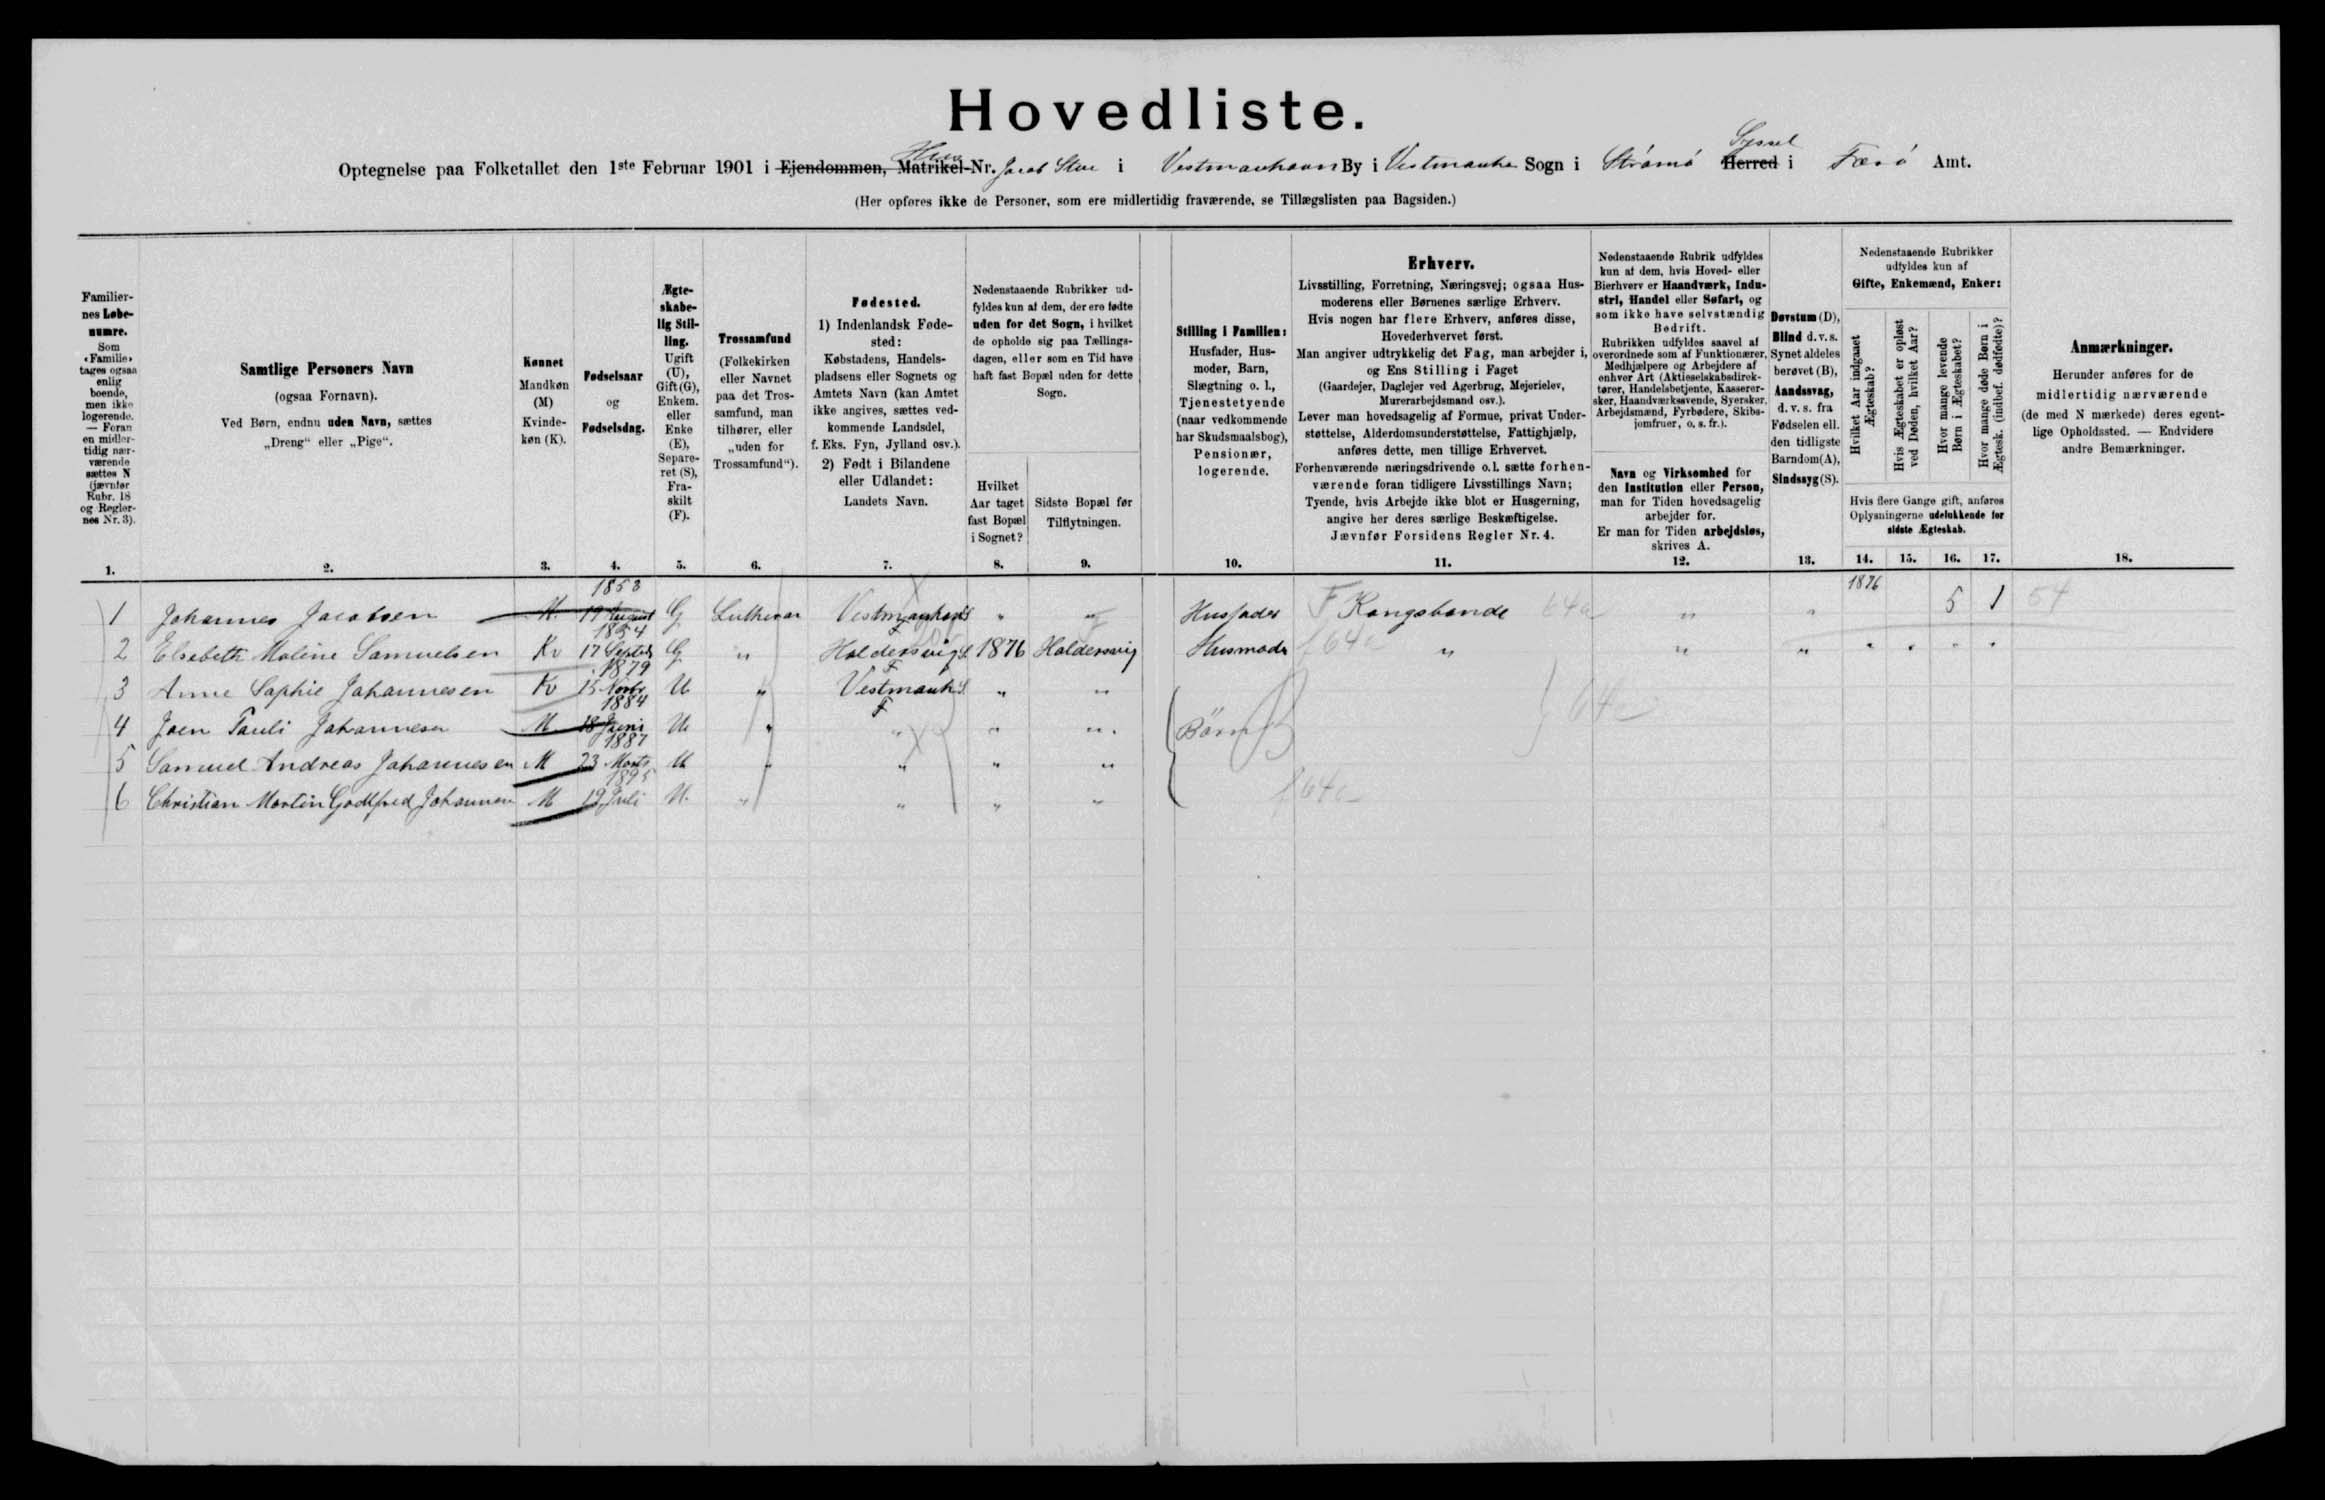 Hovedliste.
Optegnelse paa Folketallet den 1ste Februar 1901 i Ejendommen, Matrikel-Nr. Jacob i Vestmanhavn By i Vestmanha Sogn i Strömö Herred Syssel i Færö Amt.
(Her opføres ikke de Personer, som ere midlertidig fraværende, se Tillægslisten paa Bagsiden.)
Familiernes Løbenumre.
Som «Familie» tages ogsaa enlig boende, men ikke logerende. — Foran en midlertidig nærværende sættes N (jævnfør Rubr. 18 og Reglernes Nr. 3).
Samtlige Personers Navn
(ogsaa Fornavn).
Ved Børn, endnu uden Navn, sættes
„Dreng“ eller „Pige“.
Kønnet
Mandkøn (M)
Kvindekøn (K).
Fødselsaar
og
Fødselsdag.
Ægteskabelig Stilling.
Ugift (U), Gift (G), Enkem. eller Enke (E), Separeret (S), Fraskilt (F).
Trossamfund
(Folkekirken eller Navnet paa det Trossamfund, man tilhører, eller „uden for Trossamfund“).
Fødested.
1) Indenlandsk Fødested:
Købstadens, Handelspladsens eller Sognets og Amtets Navn (kan Amtet ikke angives, sættes vedkommende Landsdel, f. Eks. Fyn, Jylland osv.).
2) Født i Bilandene eller Udlandet:
Landets Navn.
Nedenstaaende Rubrikker udfyldes kun af dem, der ere fødte uden for det Sogn, i hvilket de opholde sig paa Tællingsdagen, eller som en Tid have haft fast Bopæl uden for dette Sogn.
Hvilket Aar taget fast Bopæl i Sognet?
Sidste Bopæl før Tilflytningen.
Stilling i Familien:
Husfader, Husmoder, Barn, Slægtning o. l., Tjenestetyende (naar vedkommende har Skudsmaalsbog), Pensionær, logerende.
Erhverv.
Livsstilling, Forretning, Næringsvej; ogsaa Husmoderens eller Børnenes særlige Erhverv.
Hvis nogen har flere Erhverv, anføres disse, Hovederhvervet først.
Man angiver udtrykkelig det Fag, man arbejder i, og Ens Stilling i Faget
(Gaardejer, Daglejer ved Agerbrug, Mejerielev, Murerarbejdsmand osv.).
Lever man hovedsagelig af Formue, privat Understøttelse, Alderdomsunderstøttelse, Fattighjælp, anføres dette, men tillige Erhvervet.
Forhenværende næringsdrivende o. l. sætte forhenværende foran tidligere Livsstillings Navn;
Tyende, hvis Arbejde ikke blot er Husgerning, angive her deres særlige Beskæftigelse.
Jævnfør Forsidens Regler Nr. 4.
Nedenstaaende Rubrik udfyldes kun af dem, hvis Hoved- eller Bierhverv er Haandværk, Industri, Handel eller Søfart, og som ikke have selvstændig Bedrift.
Rubrikken udfyldes saavel af overordnede som af Funktionærer, Medhjælpere og Arbejdere af enhver Art (Aktieselskabsdirektører, Handelsbetjente, Kasserersker, Haandværkssvende, Syersker, Arbejdsmænd, Fyrbødere, Skibsjomfruer, o. s. fr.).
Navn og Virksomhed for den Institution eller Person, man for Tiden hovedsagelig arbejder for.
Er man for Tiden arbejdsløs, skrives A.
Døvstum (D), Blind d. v. s. Synet aldeles berøvet (B), Aandssvag, d. v. s. fra Fødselen ell. den tidligste Barndom (A), Sindssyg (S).
Nedenstaaende Rubrikker udfyldes kun af
Gifte, Enkemænd, Enker:
Hvilket Aar indgaaet Ægteskab?
Hvis Ægteskabet er opløst ved Døden, hvilket Aar?
Hvor mange levende Børn i Ægteskabet?
Hvor mange døde Børn i Ægtesk. (indbef. dødfødte)?
Hvis flere Gange gift, anføres Oplysningerne udelukkende for sidste Ægteskab.
Anmærkninger.
Herunder anføres for de midlertidig nærværende (de med N mærkede) deres egentlige Opholdssted. — Endvidere andre Bemærkninger.
1. 2. 3. 4. 5. 6. 7. 8. 9. 10. 11. 12. 13. 14. 15. 16. 17. 18.
1 Johannes Jacobsen M. 1853 19 August G Lutheran Vestmanhavn „ „ Husfader F Kongsbonde 64a „ „ 1876 5 1 54
2 Elsebeth Malene Samuelsen Kv 1854 17 Septbr G „ Haldersvig S. F 1876 Haldersvig Husmoder f 64a „ „ „ „ „ „ „
3 Anne Sophie Johannesen Kv 1879 15 Novbr U „ Vestmanh S. F „ „
4 Joen Pauli Johannesen M 1884 18 Juni U „ „ „ „ Börn 64c
5 Samuel Andreas Johannesen M 1887 23 Marts U „ „ „ „
6 Christian Martin Godtfred Johannesen M 1895 19 Juli U. „ „ „ „ f 64c